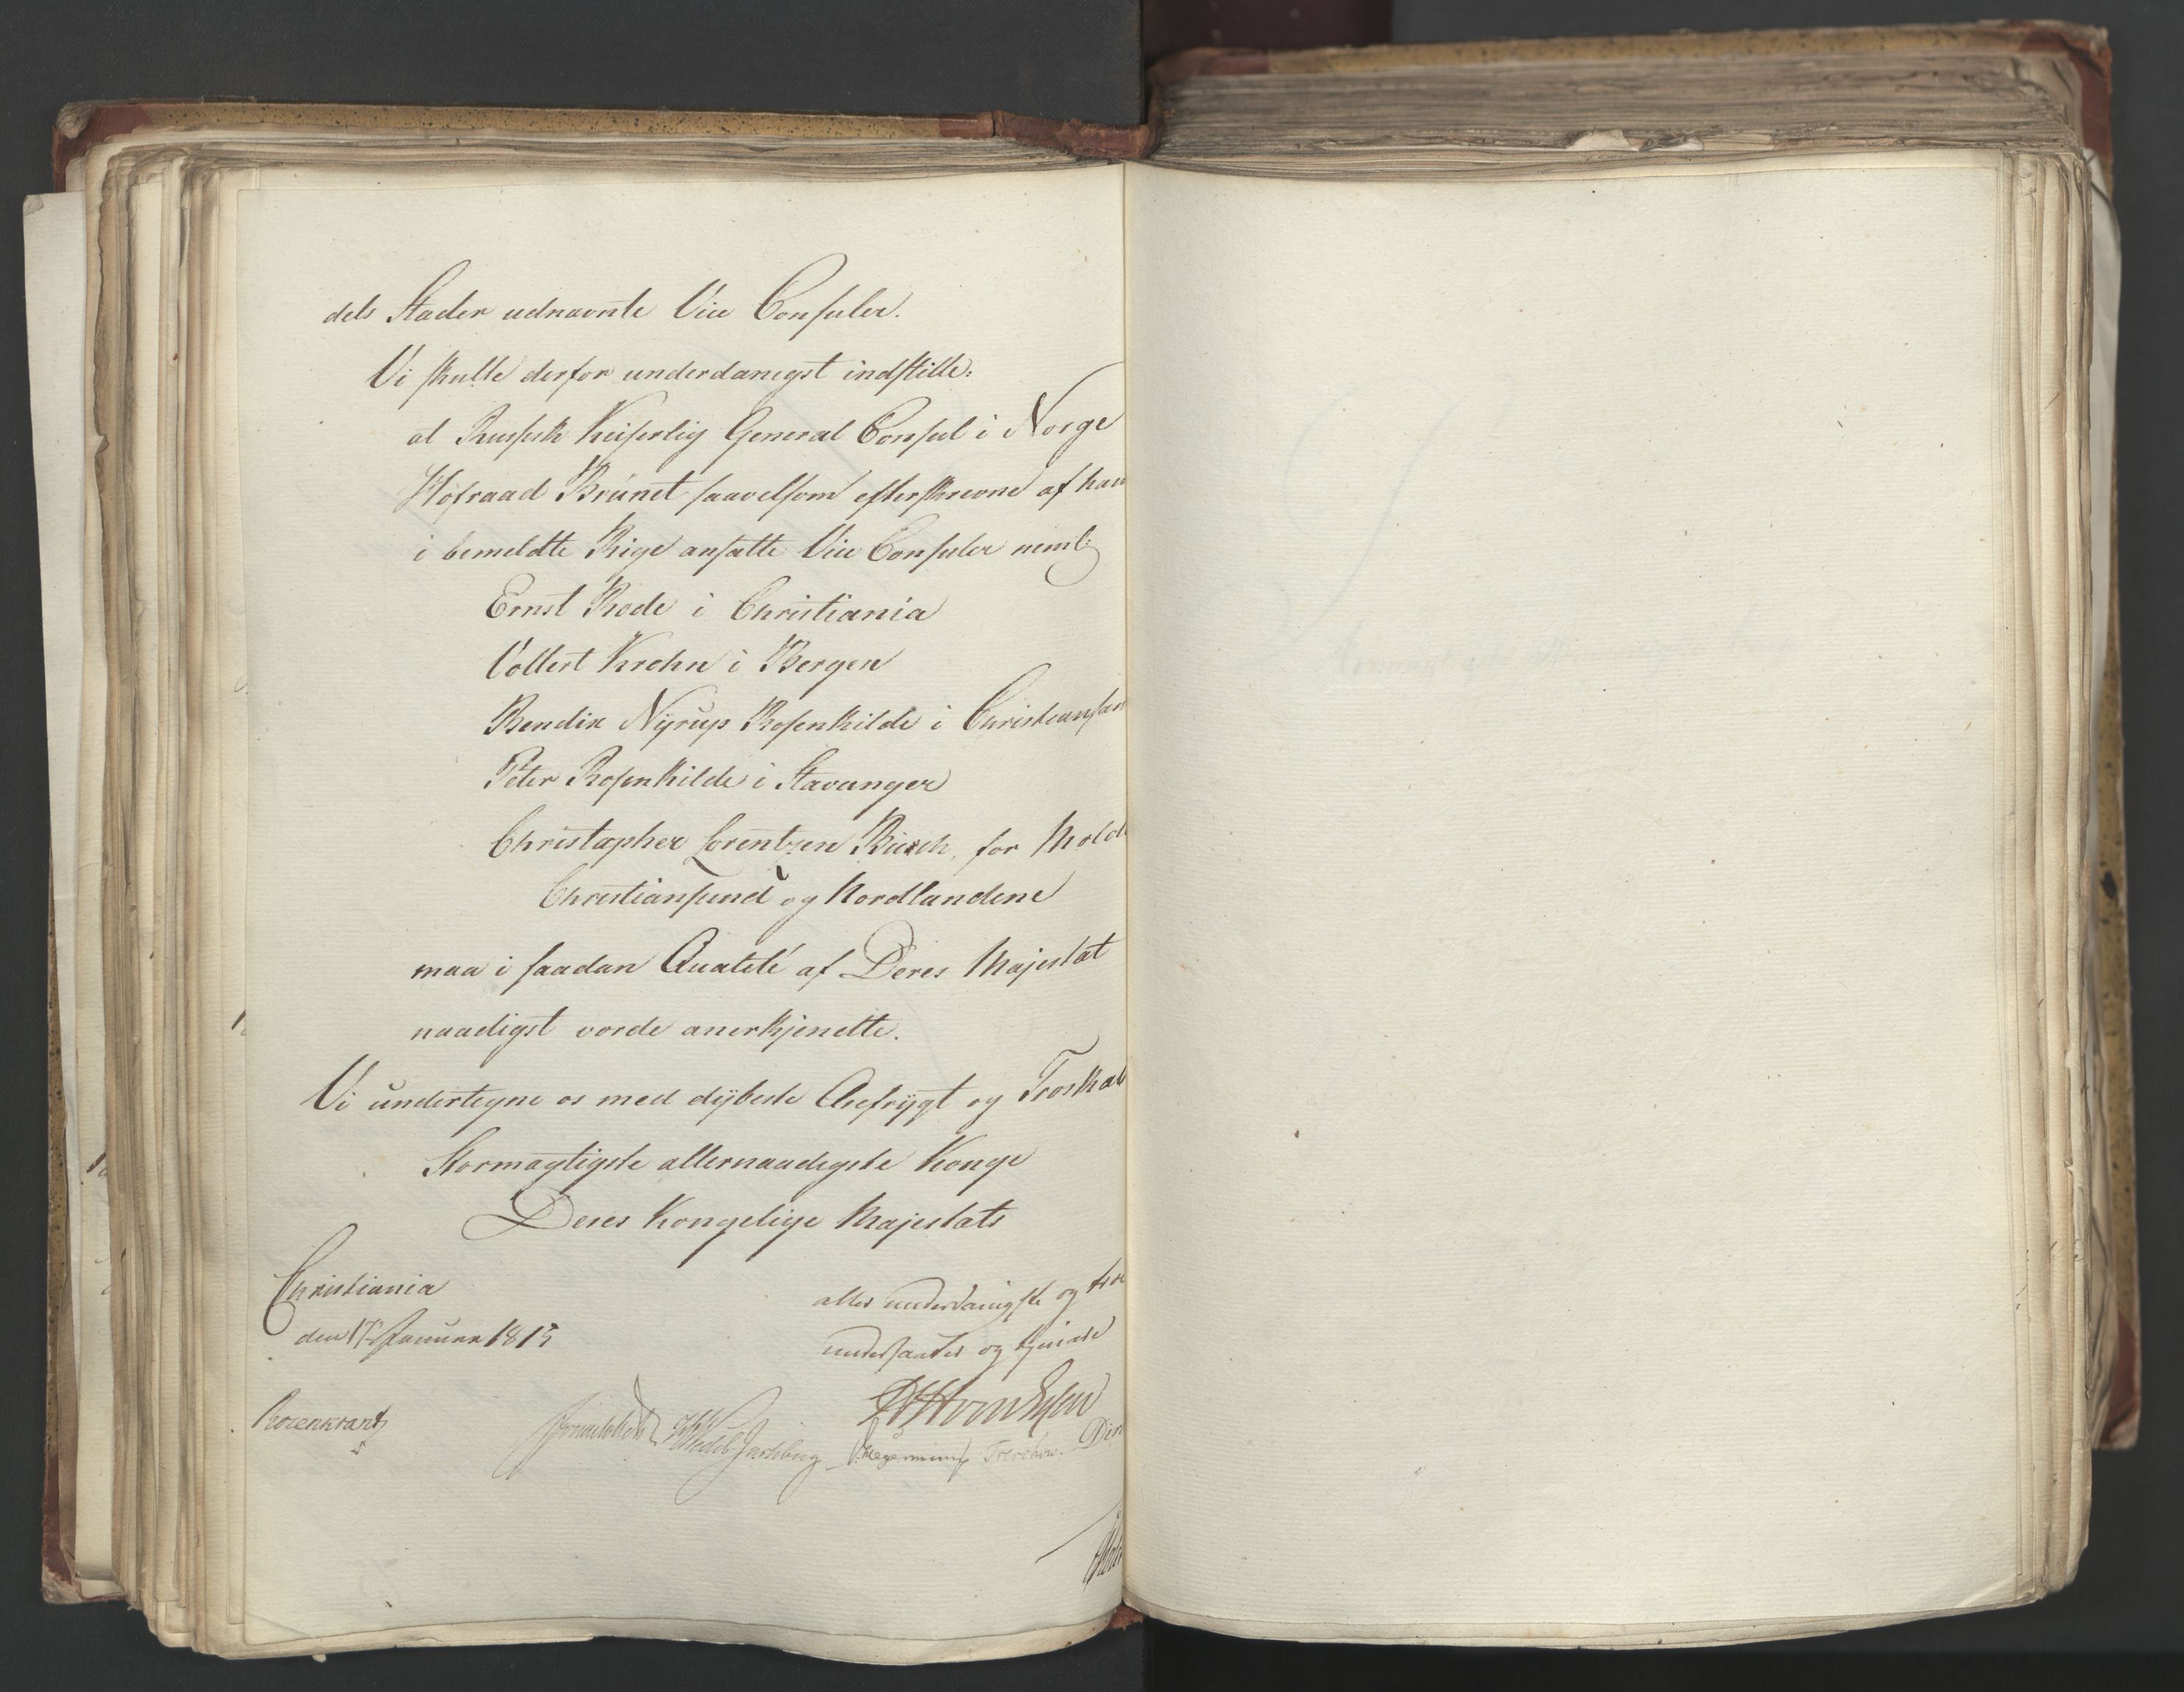 dels Stæder udnævnte Vice Consuler.
Vi skulle derfor underdanigst indstille:
at Russisk Keiserlig General Consul i Norge
Hofraad Brünet saavelsom efterskrevne af ham
i bemeldte Rige ansatte Vice Consuler neml:
Ernst Rode i Christiania
Vollert Krohn i Bergen
Bendix Nÿrup Rosenkilde i Christiansan
Peter Rosenkilde i Stavanger
Christopher Lorentzen Busch, for Molde
Christiansund og Nordlandene
maa i saadan Qualité af Deres Majestæt
naadigst vorde anerkjendte.
Vi undertegne os med dÿbeste Ærefrÿgt og Troskab
Stormægtigste allernaadigste Konge
Deres Kongelige Majestæts
Christiania
den 17 Januar 1815
aller underdanigste og tro
undersaatter og tjenere
Rosenkrantz
Sommerhielm
HWedel Jarlsberg
Hegermann
Treschow.